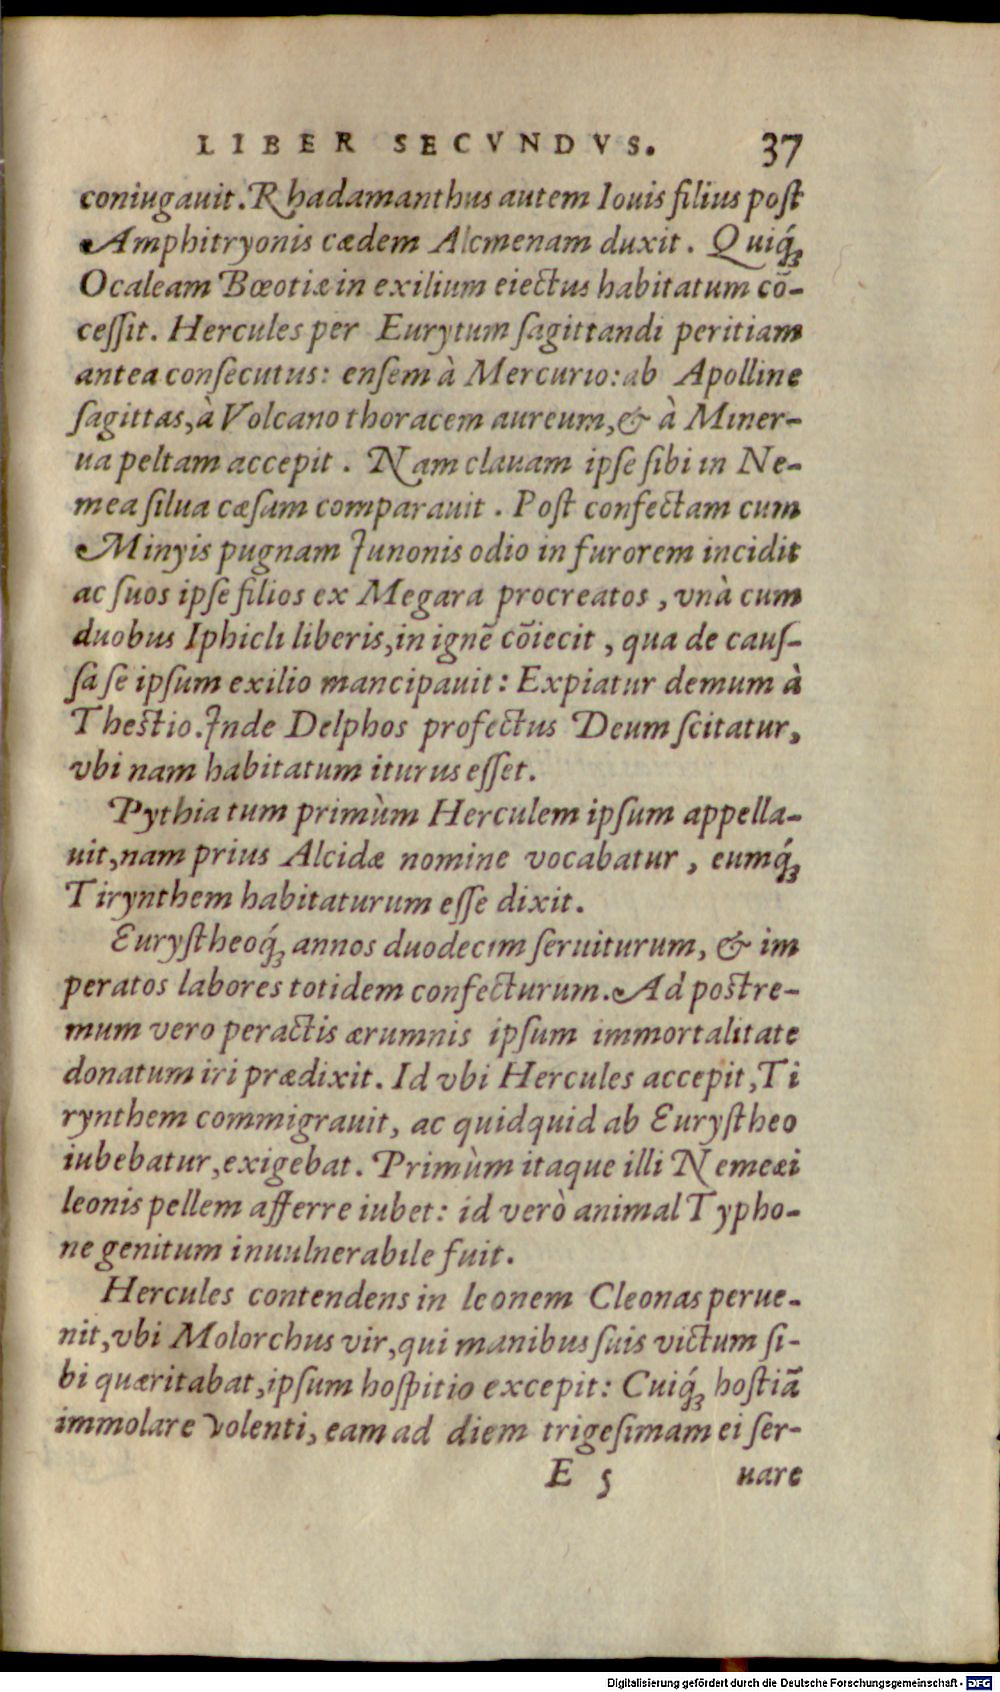 LIBER SECVNDVS. 37
coniugauit. Rhadamanthus autem Iouis filius poſt
Amphitryonis cædem Alcmenam duxit. Quiq́ꝫ
Ocaleam Bœotiæ in exilium eiectus habitatum cō-
ceſſit. Hercules per Eurytum ſagittandi peritiam
antea conſecutus: enſem à Mercurio: ab Apolline
ſagittas, à Volcano thoracem aureum, & à Miner-
ua peltam accepit. Nam clauam ipſe ſibi in Ne-
mea ſilua cæſam comparauit. Poſt confectam cum
Minyis pugnam Junonis odio in furorem incidit
ac ſuos ipſe filios ex Megara procreatos, vnà cum
duobus Iphicli liberis, in ignē cōiecit, qua de cauſ-
ſa ſe ipſum exilio mancipauit: Expiatur demum à
Theſtio. Jnde Delphos profectus Deum ſcitatur,
vbi nam habitatum iturus eſſet.
Pythia tum primùm Herculem ipſum appella-
uit, nam prius Alcidæ nomine vocabatur, eumq́ꝫ
Tirynthem habitaturum eſſe dixit.
Euryſtheoq́ꝫ annos duodecim ſeruiturum, & im
peratos labores totidem confecturum. Ad poſtre-
mum vero peractis ærumnis ipſum immortalitate
donatum iri prædixit. Id vbi Hercules accepit, Ti
rynthem commigrauit, ac quidquid ab Euryſtheo
iubebatur, exigebat. Primùm itaque illi Nemeæi
leonis pellem afferre iubet: id verò animal Typho-
ne genitum inuulnerabile fuit.
Hercules contendens in leonem Cleonas perue-
nit, vbi Molorchus vir, qui manibus ſuis victum ſi-
bi quæritabat, ipſum hoſpitio excepit: Cuiq́ꝫ hoſtiā
immolare volenti, eam ad diem trigeſimam ei ſer-
E 5 uare
Digitalisierung gefördert durch die Deutsche Forschungsgemeinschaft - DFG